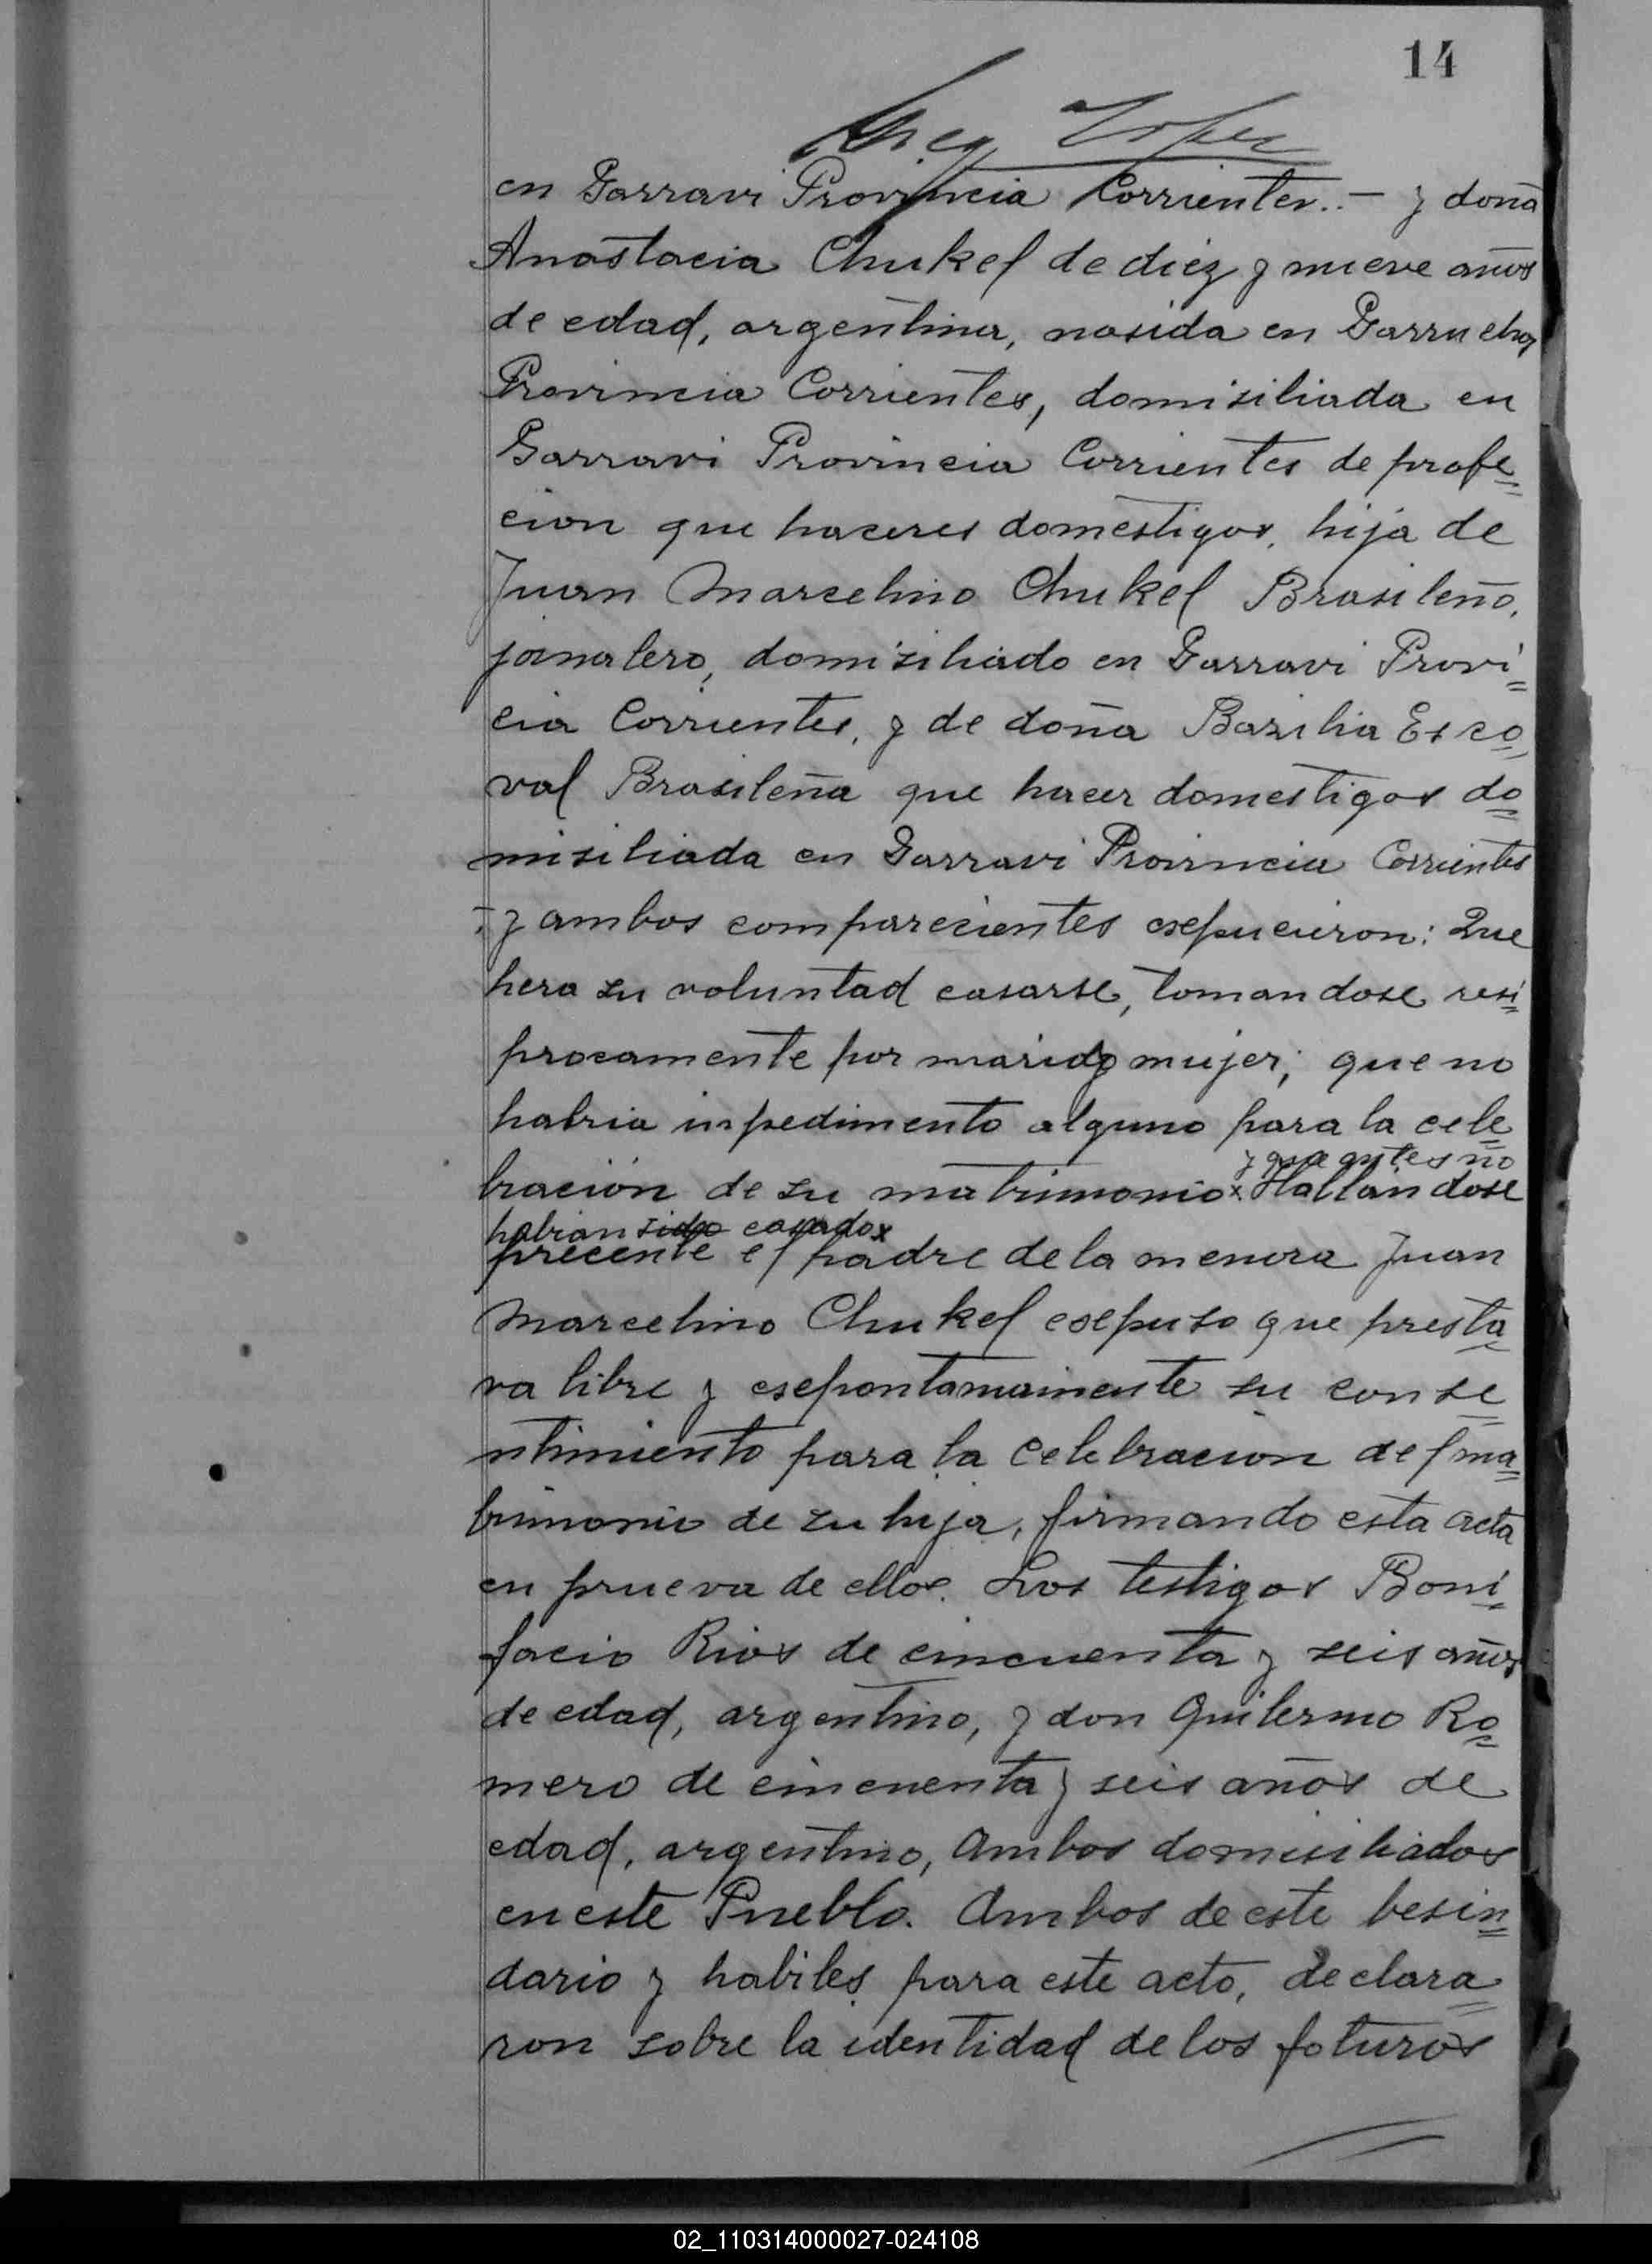 14
Greg Lopez
en Garravi Provincia Corrientes.- y doña
Anastacia Chukel de diez y nueve años
de edad, argentina, nasida en Garruchos
Provincia Corrientes, domisiliada en
Garravi Provincia Corrientes de profe
cion que haceres domestigos, hija de
Juan Marcelino Chukel Brasileño,
jornalero, domisiliado en Garravi Provi
cia Corrientes, y de doña Bazilia Esco
val Brasileña que hacer domestigos do
misiliada en Garravi Provincia Corrientes
y ambos comparecientes esepucieron: Que
hera su voluntad casarse, tomandose resi
procamente por marido y mujer; que no
habria inpedimento alguno para la cele
y que antes no
bracion de su matrimonio x Hallandose
habian sido casado x
precente el padre de la menora Juan
Marcelino Chukel esepuso que presta
va libre y esepontamainente su conse
ntimiento para la celebracion del ma
trimonio de su hija, firmando esta acta
en prueva de ellos. Los testigos Boni
facio Rios de cincuenta y seis años
de edad, argentino, y don Guilermo Ro
mero de cincuenta y seis años de
edad, argentino, Ambos domisiliados
en este Pueblo. Ambos de este besin
dario y habiles para este acto, declara
ron sobre la identidad de los foturos
02_110314000027-024108